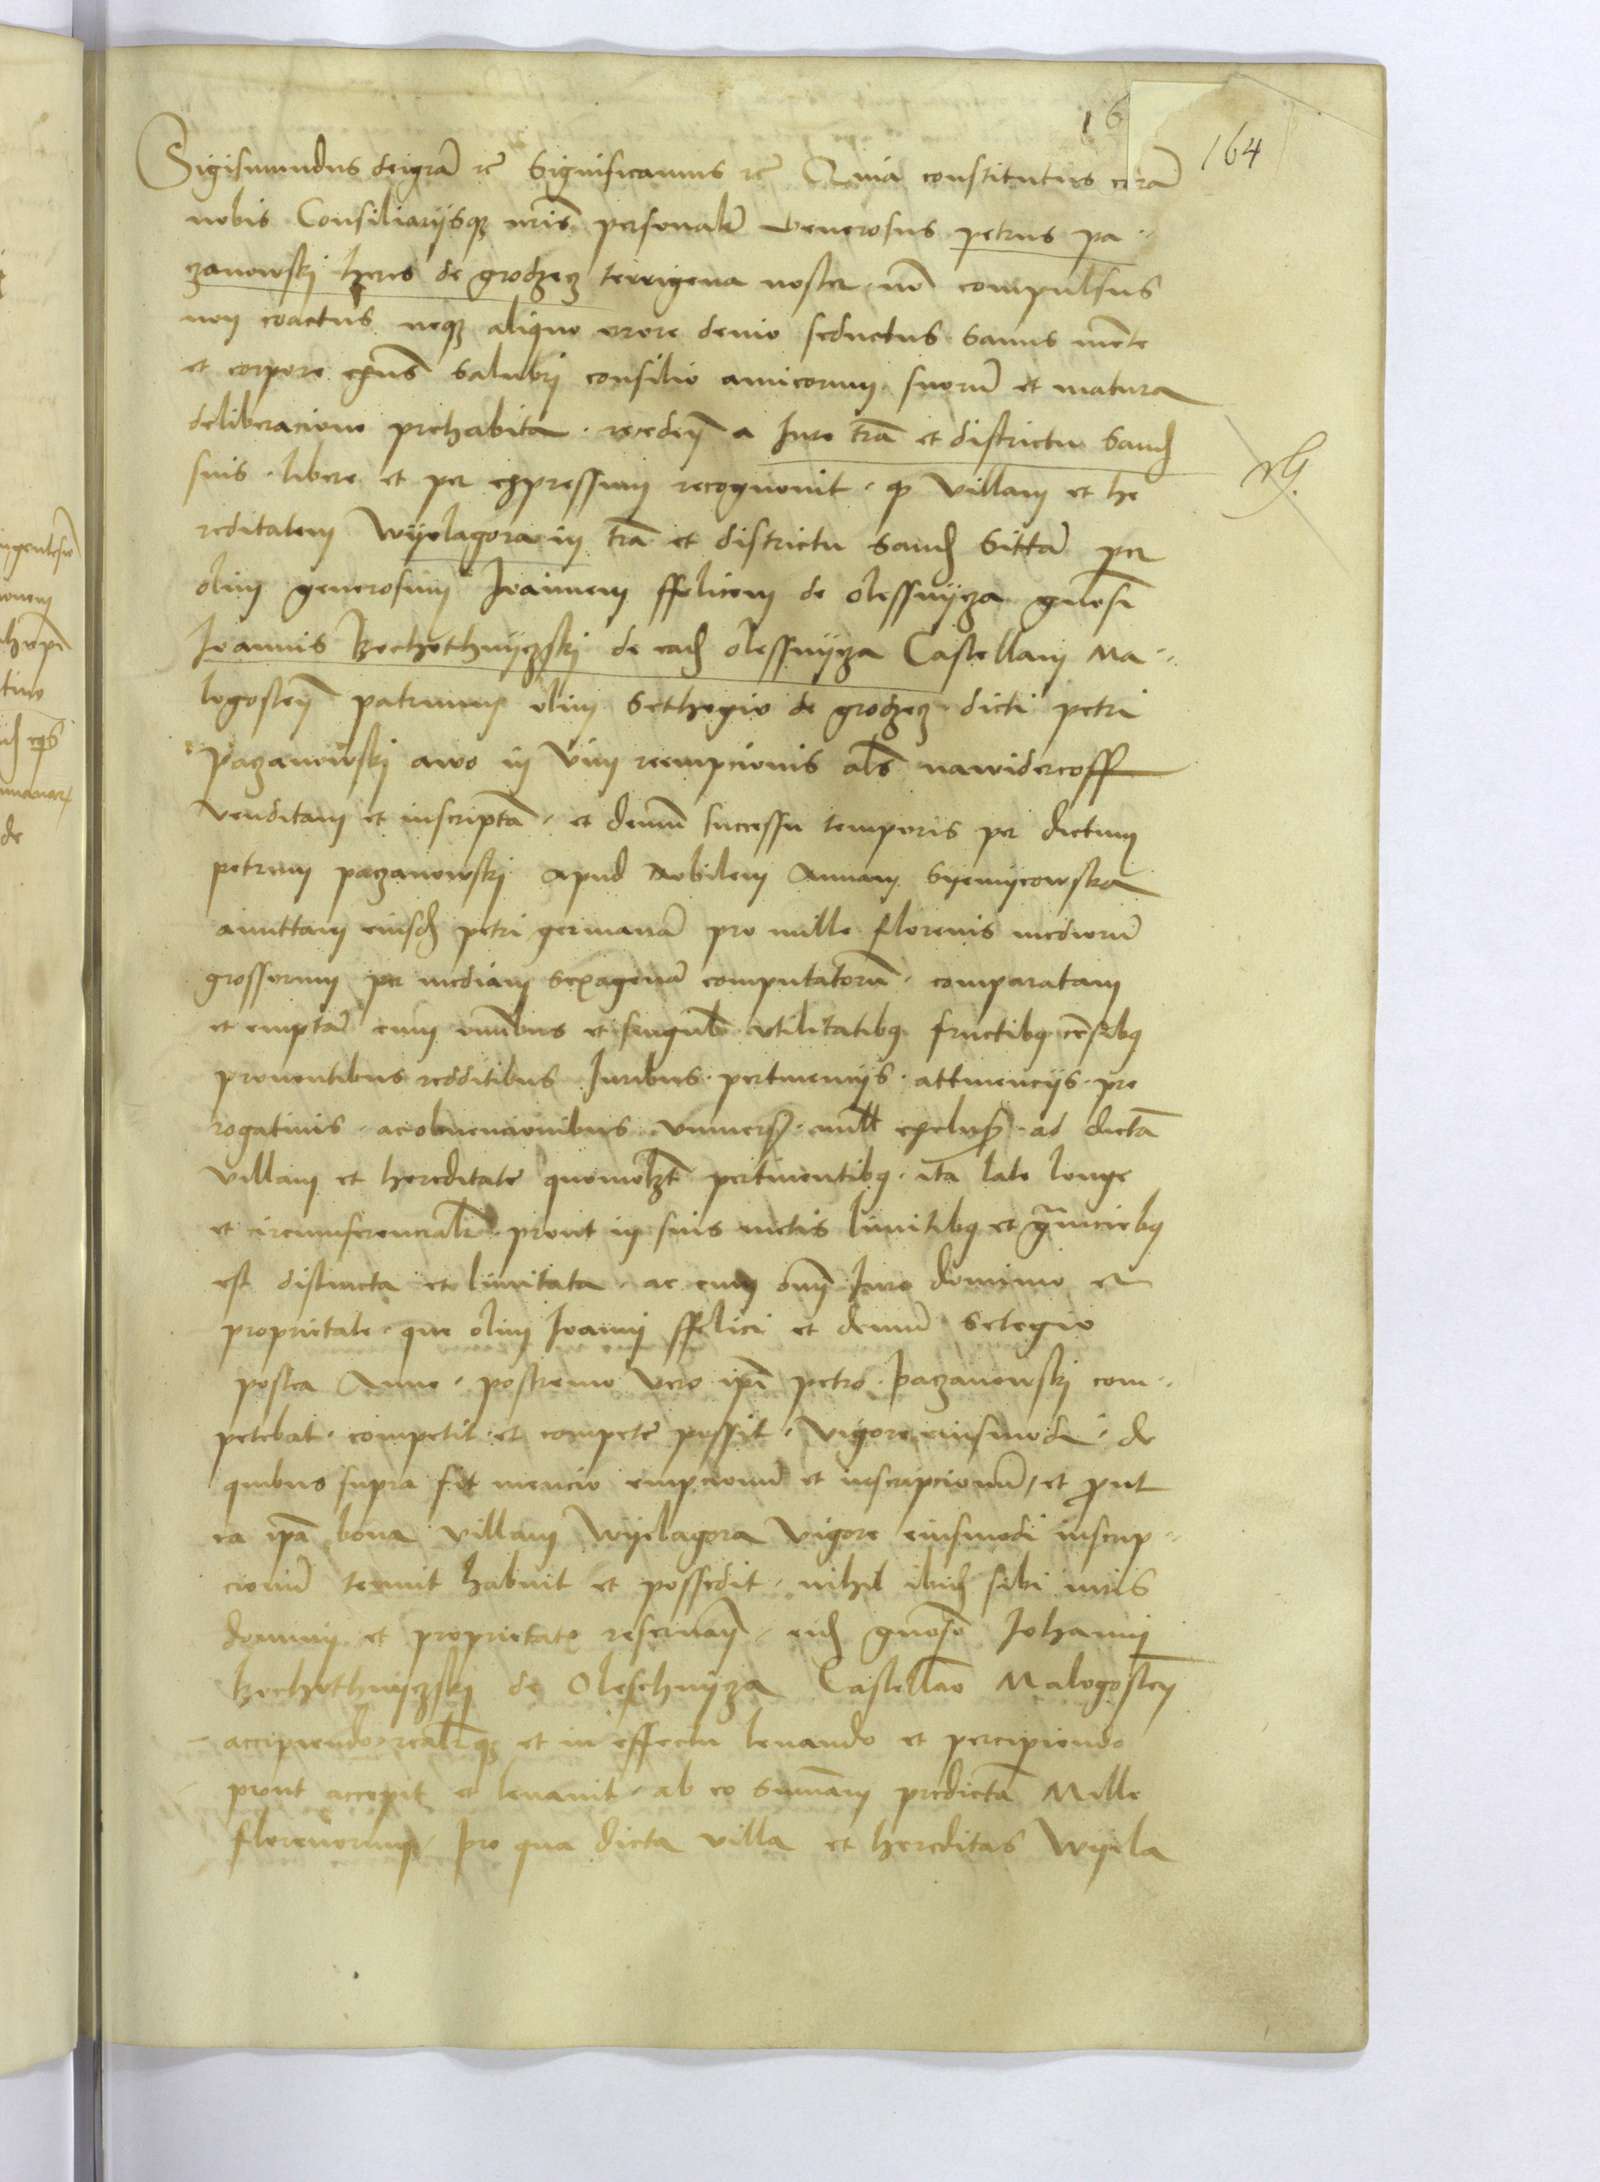 16
164
Sigismundus dei gra rc Significamus rc Quia constitutus cora
nobis Consiliarijsqz nris personalr Generosus petrus pa
czanowski heres de grodzecz terrigena noster no compulsus
non coactus neqz aliquo erore devio seductus sanus mente
et corpore exns salubri consilio amicorum suoru et matura
deliberacione prehabita recedens a Jure tra et districtu Sand
suis libere et per expressum recognovit qz villam et he
reditatem Wyelagora in tra et districtu Sand Sitta per
olim generosum Joannem ffelicem de olessnycza gnosi
Joannis Bochothnyczski de ead olessnycza Castellani Ma
logosten patruum olim Sethegio de grodzecz dicti petri
Paczanowski avo in vim reempcionis als nawidercoff
venditam et inscripta et demu successu temporis per dictum
petrum paczanowski apud nobilem Annam Syemycowska
amittam eiusd petri germana pro mille florenis medioru
grossorum per mediam sexagena computatoru comparatam
et empta cum omnibus et singul utilitatibq fructibq censibq
proventibus redditibus Juribus pertinencijs attinencijs pre
rogativis ac obvencionibus univers null exclus ad dicta
villam et hereditate quomolzt pertinentibq ita late longe
et circumferencialr prout in suis metis limitibq et graniciebq
est distincta et limitata ac cum omni Jure dominio et
proprietate que olim Joanni ffelici et demu Setegio
postea Anne postremo vero ipi petro paczanowski com
petebat competit et competer possit vigore eiusmodi de
quibus supra fit mencio empcionu et inscripcionu et prout
ea ipa bona villam Wyelagora vigore eiusmodi inscrip
cionu tenuit habuit et possedit nihil ibid sibi iuris
dominij et proprietatis reservan eid gnoso Johanni
Bochothnyczski de Oleschnycza Castellano Malogosten
accipiendo realrqz et in effectu levando et percipiendo
prout accepit et levavit ab eo Summam predicta Mille
florenorum pro qua dicta villa et hereditas Wyela